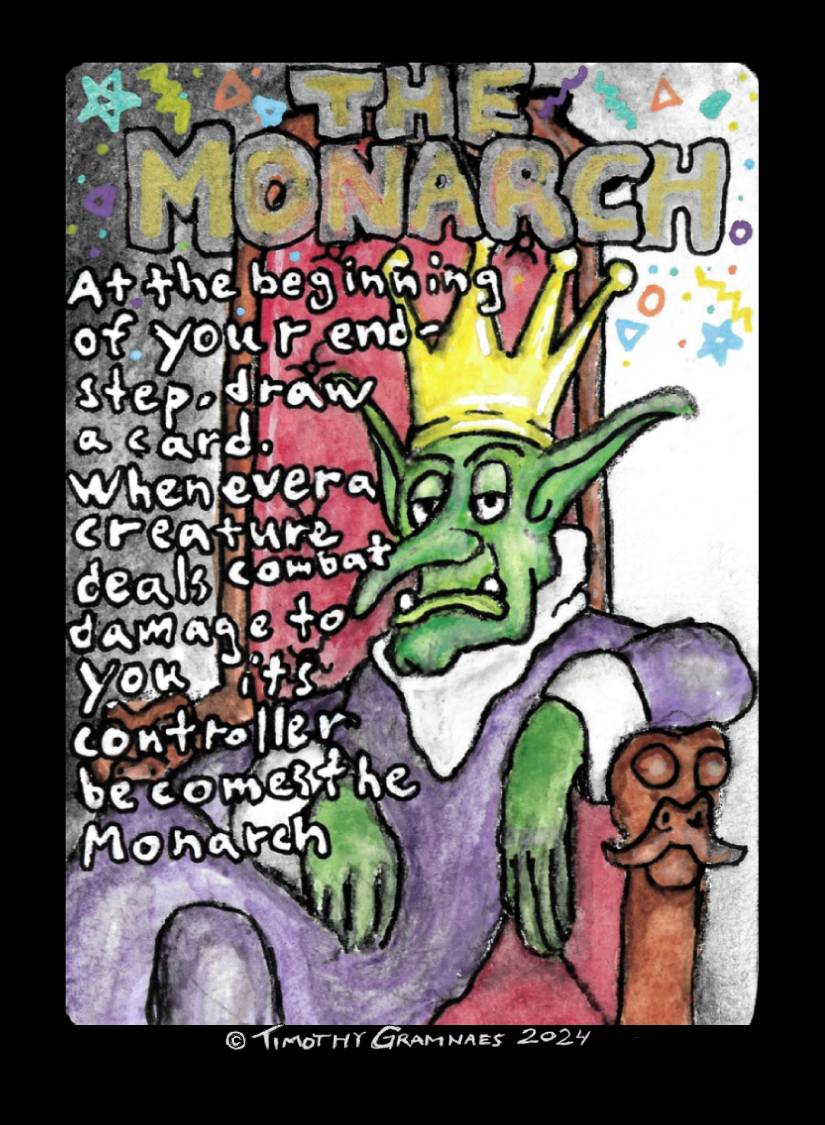 THE
MONARCH
At the beginning
of your end-
step, draw
a card.
Whenever a
creature
deals combat
damage to
you its
controller
becomes the
Monarch
© TIMOTHY GRAMNAES 2024